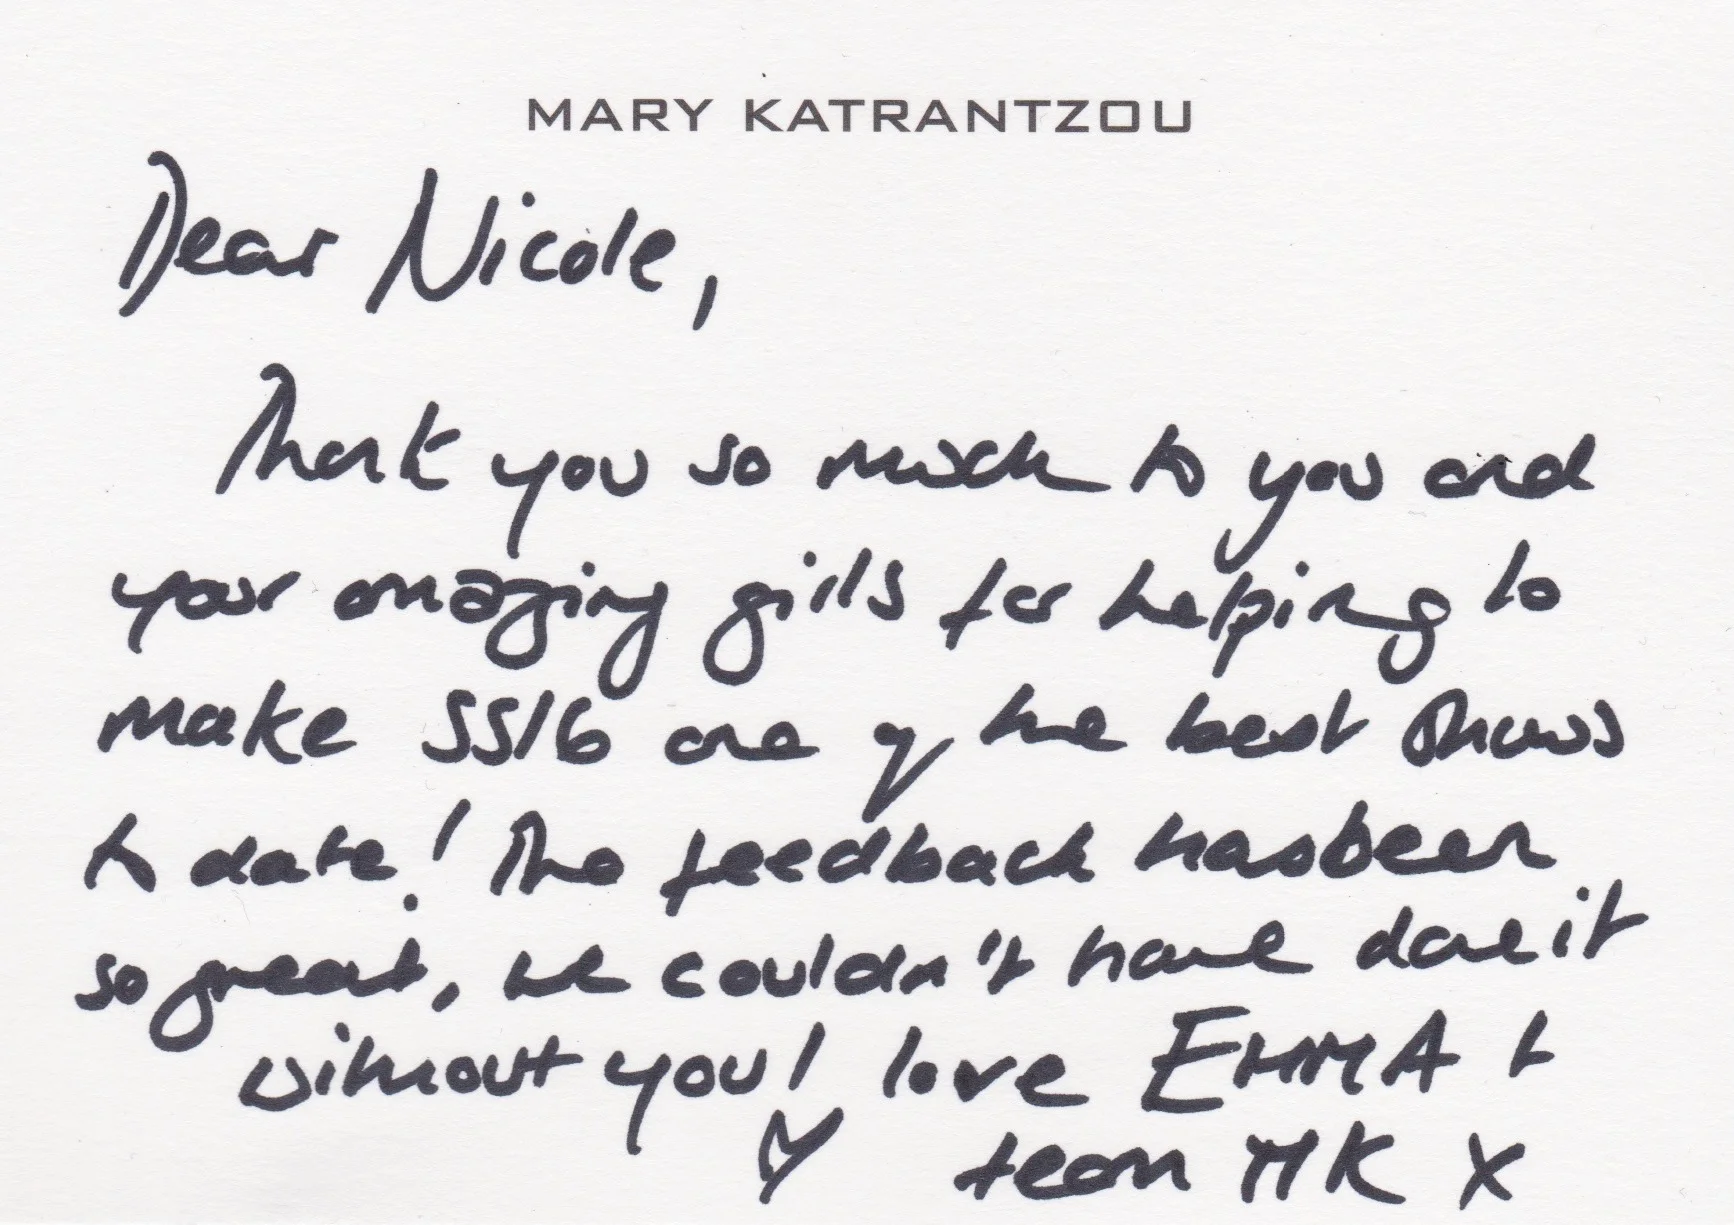 MARY KATRANTZOU
Dear Nicole,
Thank you so much to you and
your amazing girls for helping to
make SS16 one of the best shows
to date! The feedback has been
so great, we couldn't have done it
without you! love EMMA +
team MK X